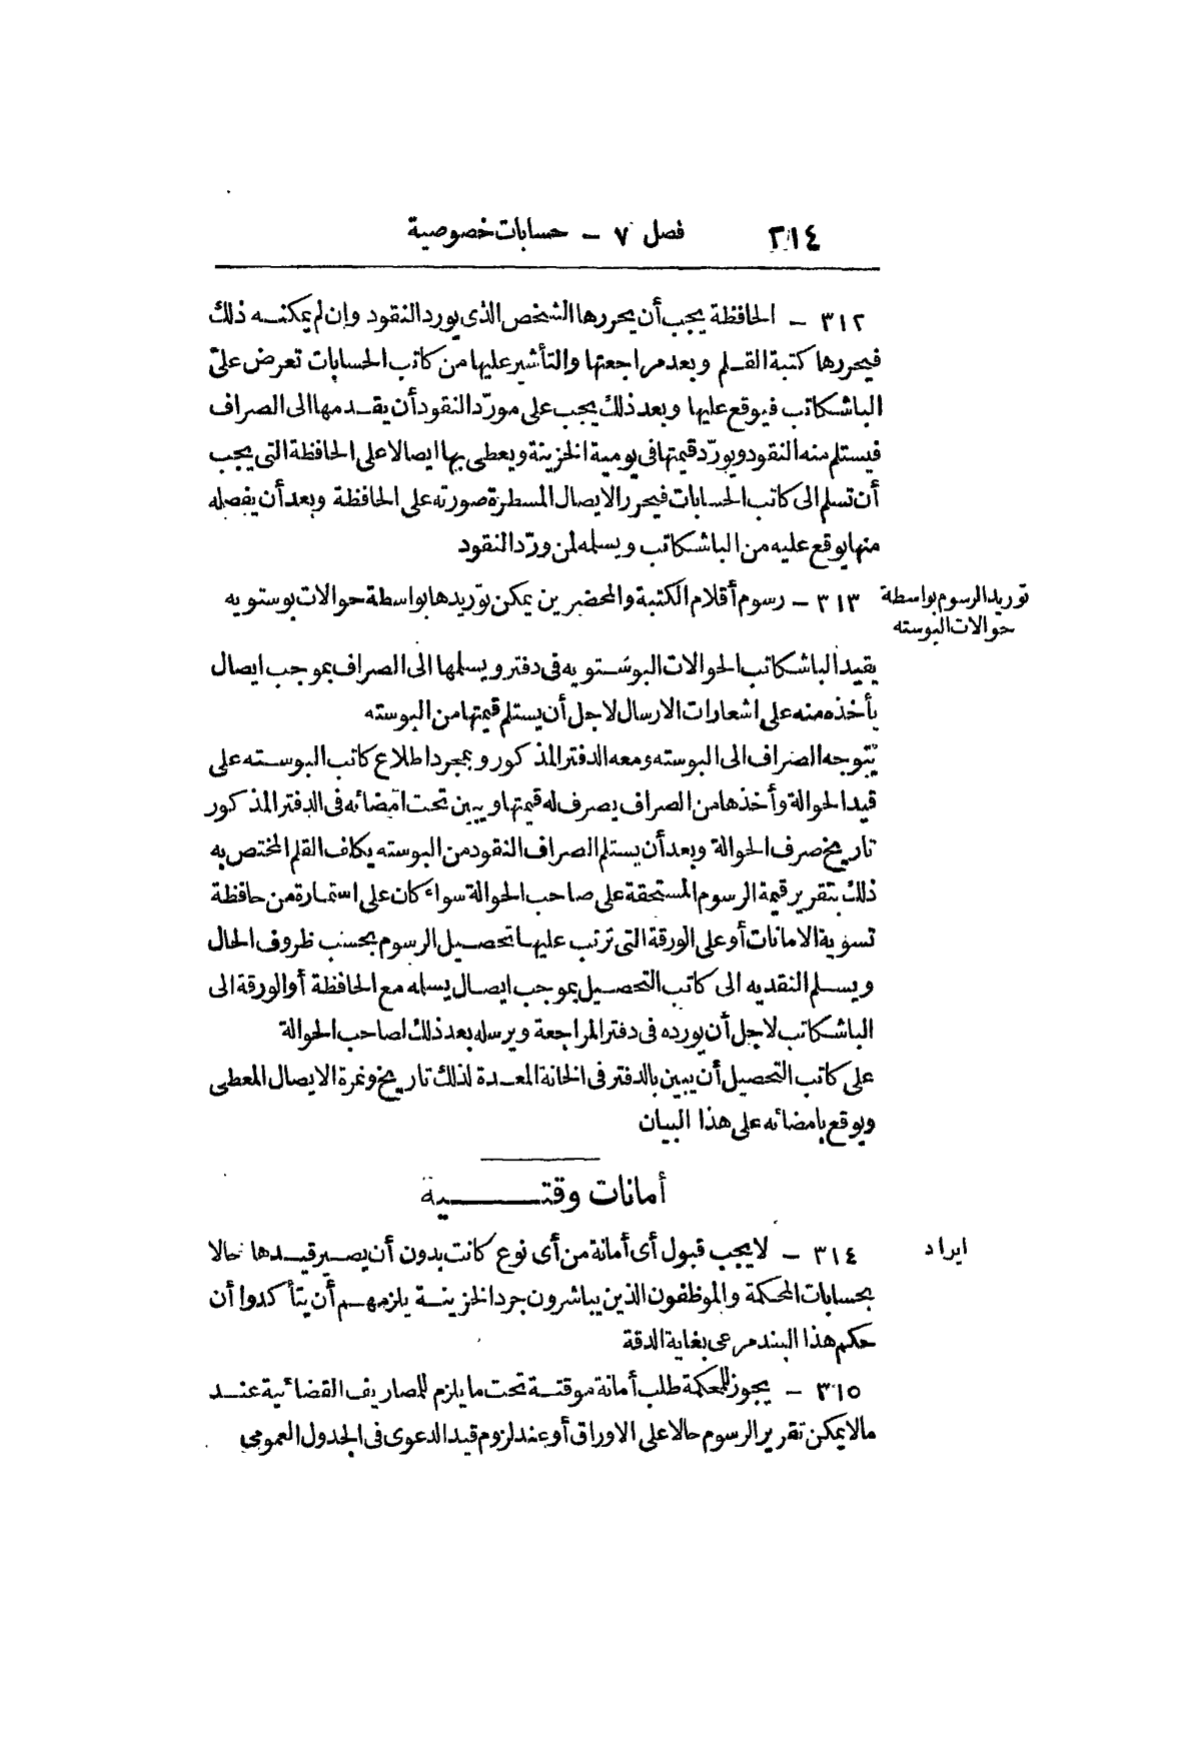 ٢١٤ فصل ٧ - حسابات خصوصية
٣١٢ - الحافظة يجب أن يحررها الشخص الذى يورد النقود وإن لم يمكنه ذلك
فيحررها كتبة القلم وبعد مراجعتها والتأشير عليها من كاتب الحسابات تعرض على
الباشكاتب فيوقع عليها وبعد ذلك يجب على مورّد النقود أن يقدمها الى الصراف
فيستلم منه النقود ويورّد قيمتها فى يومية الخزينة ويعطى بها ايصالا على الحافظة التى يجب
أن تسلم الى كاتب الحسابات فيحرر الايصال المسطرة صورته على الحافظة وبعد أن يفصله
منها يوقع عليه من الباشكاتب ويسلمه لمن ورّد النقود
توريد الرسوم بواسطة
حوالات البوسته
٣١٣ - رسوم أقلام الكتبة والمحضرين يمكن توريدها بواسطة حوالات بوستويه
يقيد الباشكاتب الحوالات البوستويه فى دفتر ويسلمها الى الصراف بموجب ايصال
يأخذه منه على اشعارات الارسال لاجل أن يستلم قيمتها من البوسته
يتوجه الصراف الى البوسته ومعه الدفتر المذكور وبمجرد اطلاع كاتب البوسته على
قيد الحوالة وأخذها من الصراف يصرف له قيمتها ويبين تحت امضائه فى الدفتر المذكور
تاريخ صرف الحوالة وبعد أن يستلم الصراف النقود من البوسته يكلف القلم المختص به
ذلك بتقرير قيمة الرسوم المستحقة على صاحب الحوالة سواء كان على استمارة من حافظة
تسوية الامانات أو على الورقة التى ترتب عليها تحصيل الرسوم بحسب ظروف الحال
ويسلم النقديه الى كاتب التحصيل بموجب ايصال يسلمه مع الحافظة أو الورقة الى
الباشكاتب لاجل أن يورده فى دفتر المراجعة ويرسله بعد ذلك لصاحب الحوالة
على كاتب التحصيل أن يبين بالدفتر فى الخانة المعدة لذلك تاريخ ونمرة الايصال المعطى
ويوقع بامضائه على هذا البيان
أمانات وقتية
ايراد
٣١٤ - لا يجب قبول أى أمانة من أى نوع كانت بدون أن يصير قيدها حالا
بحسابات المحكمة والموظفون الذين يباشرون جرد الخزينة يلزمهم أن يتأكدوا أن
حكم هذا البند مرعى بغاية الدقة
٣١٥ - يجوز للمحكمة طلب أمانة موقتة تحت ما يلزم للمصاريف القضائية عند
ما لا يمكن تقرير الرسوم حالا على الاوراق أو عند لزوم قيد الدعوى فى الجدول العمومى